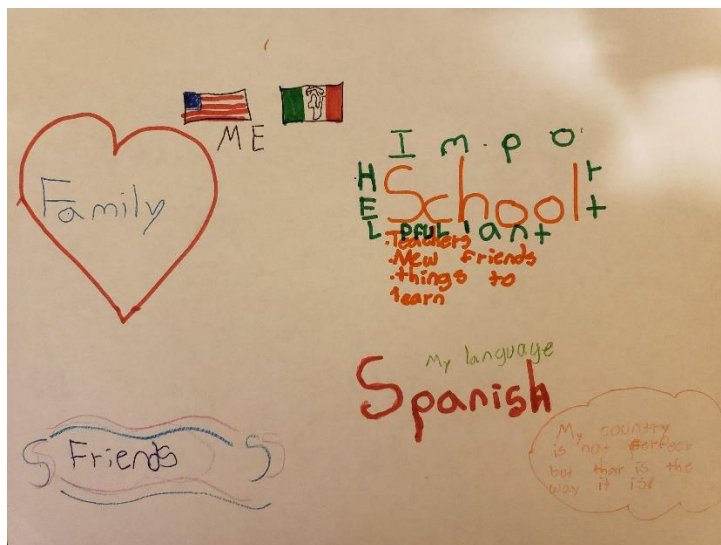 ME
Family
Impo
H School r
E t
L pfuL ant
.Teachers
.New friends
.things to
learn
My language
Spanish
Friends
My country
is not perfect
but that is the
way it is!